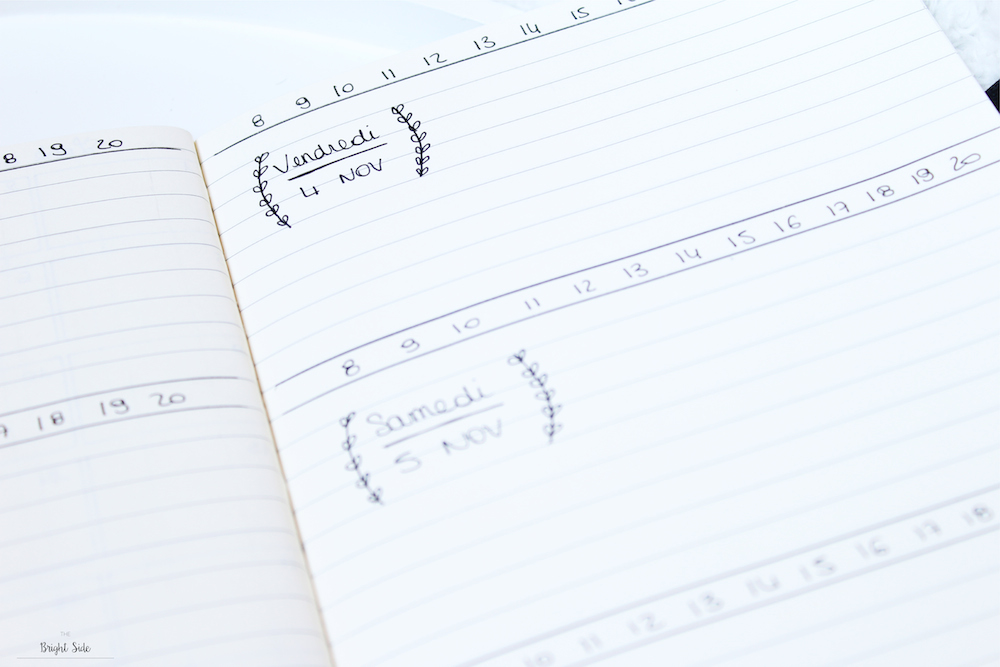 8 19 20
18 19 20
8 9 10 11 12 13 14 15
Vendredi
4 NOV
8 9 10 11 12 13 14 15 16 17 18 19 20
Samedi
5 NOV
10 11 12 13 14 15 16 17 18
THE
Bright Side